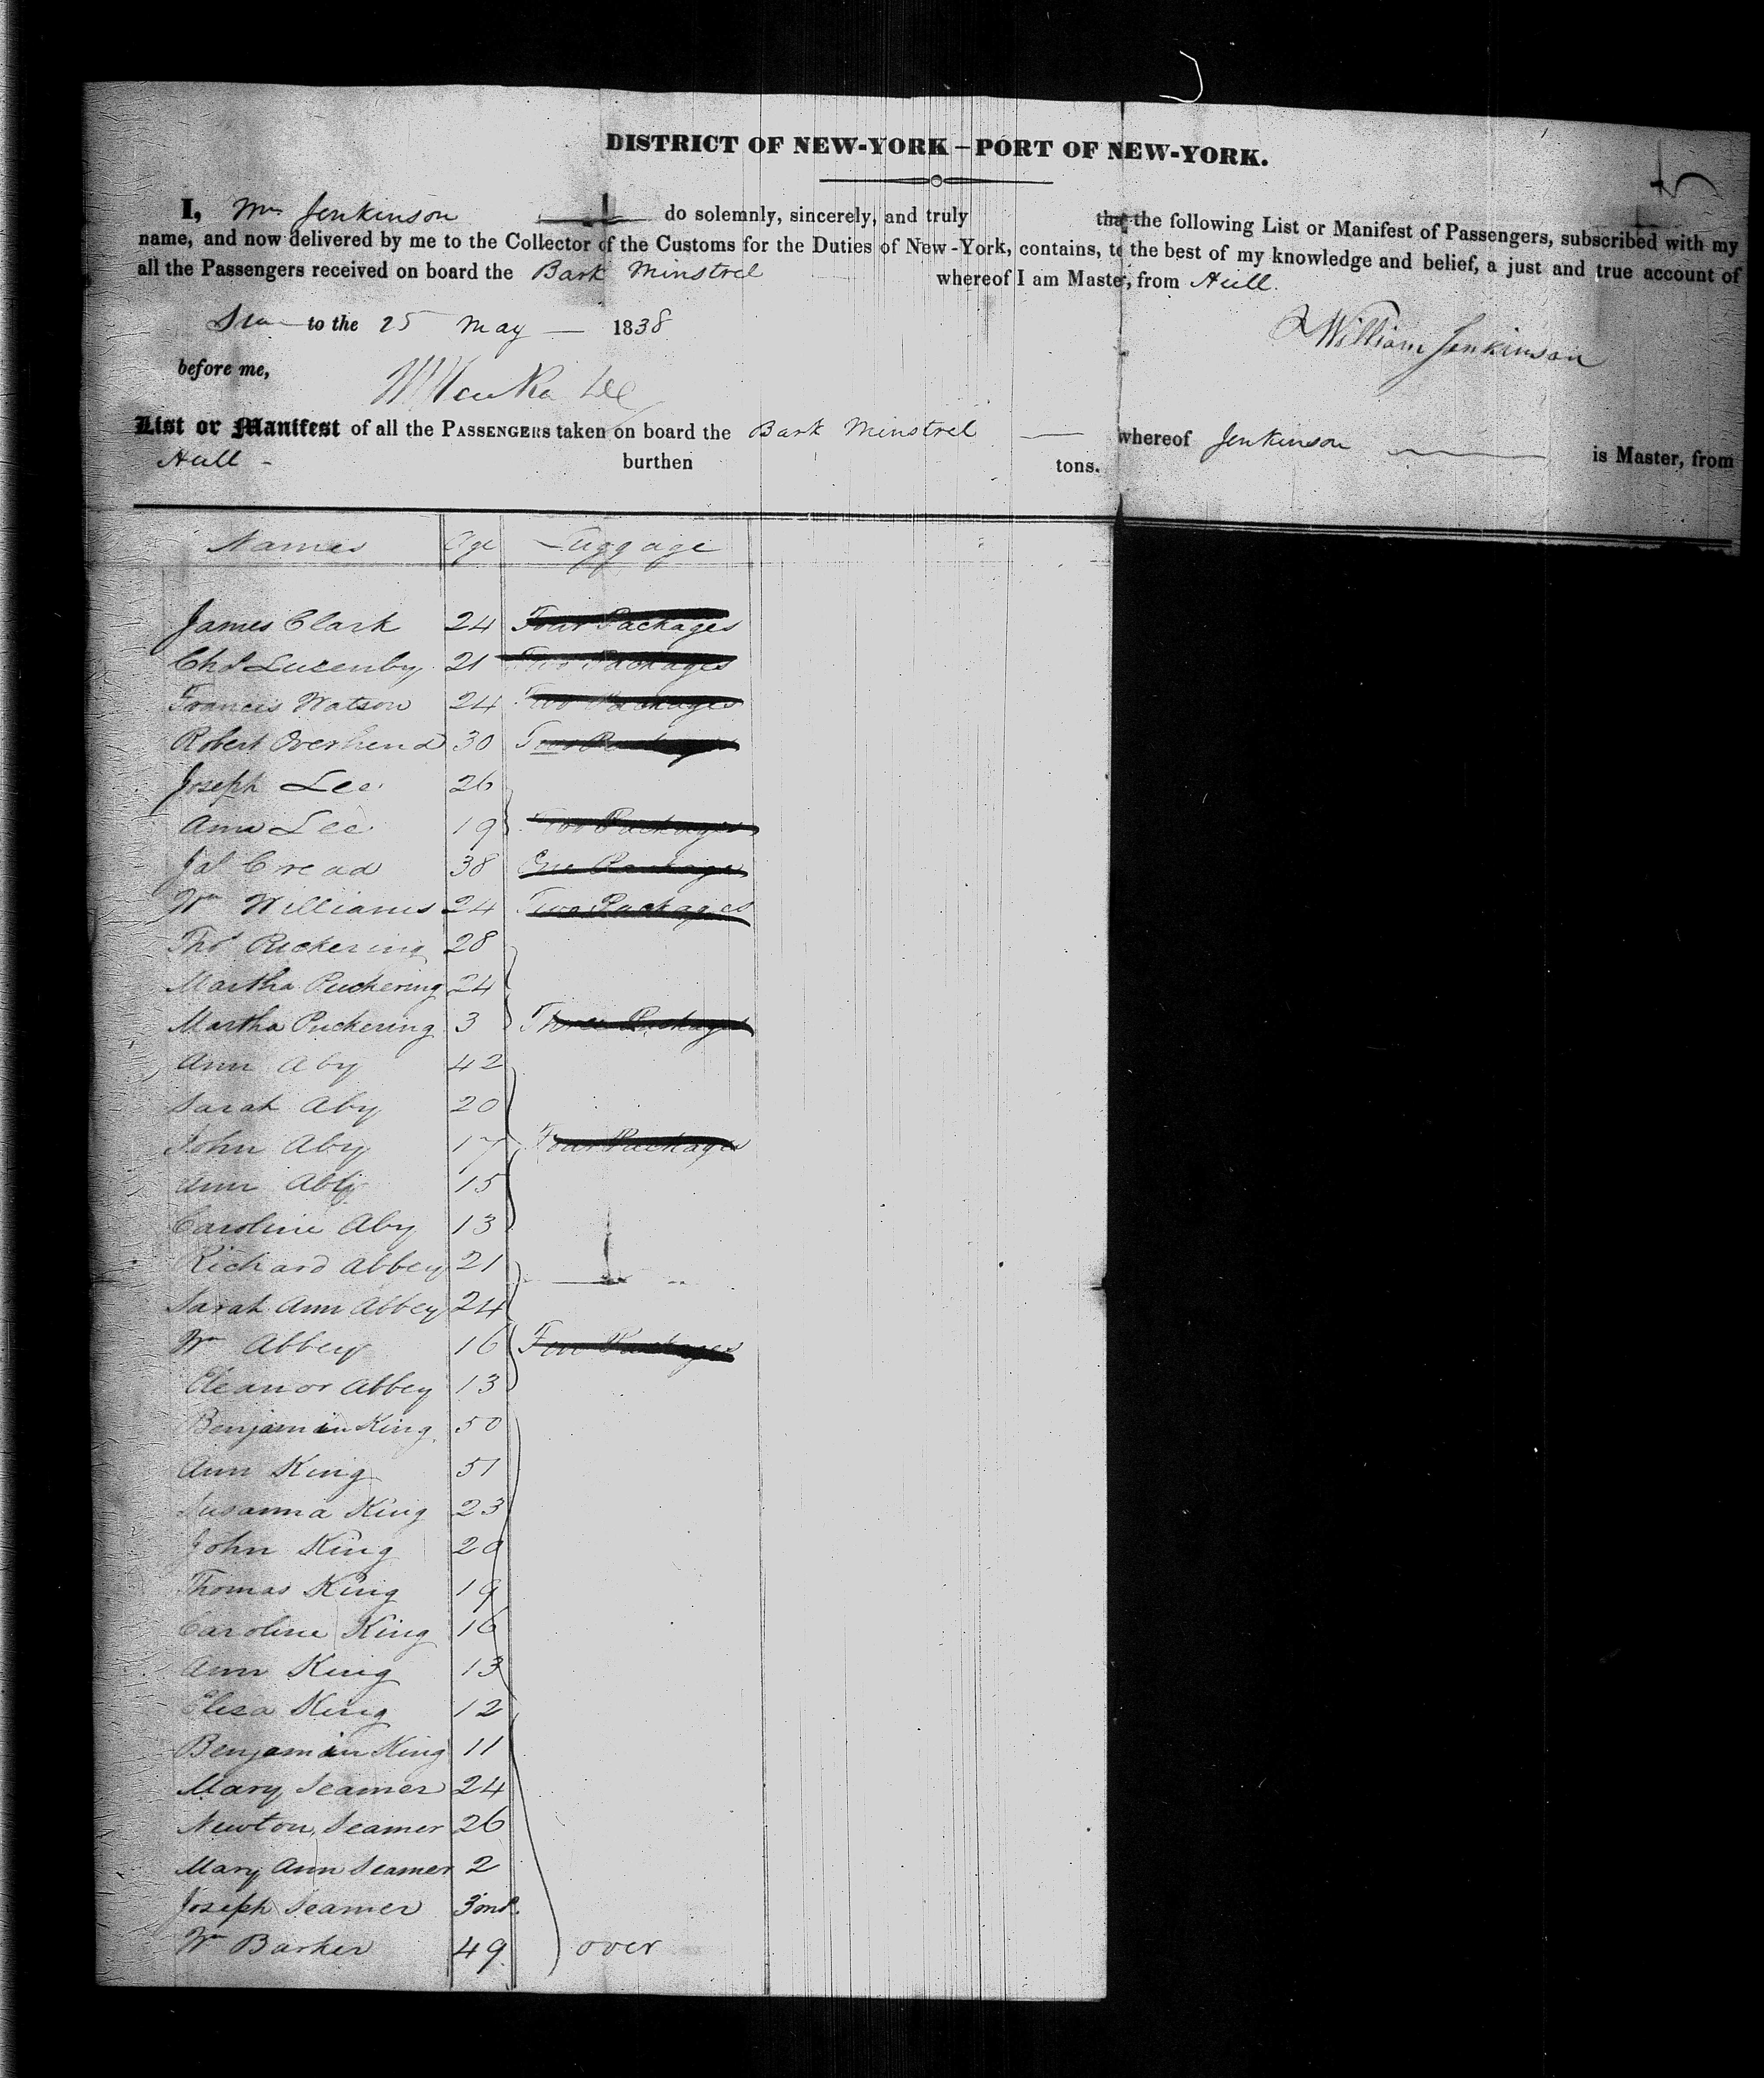 DISTRICT OF NEW-YORK—PORT OF NEW-YORK.
I, Wm Jenkinson do solemnly, sincerely, and truly that the following List or Manifest of Passengers, subscribed with my
name, and now delivered by me to the Collector of the Customs for the Duties of New-York, contains, to the best of my knowledge and belief, a just and true account of
all the Passengers received on board the Bark Minstrel whereof I am Master, from Hull.
to the 25 May — 1838
William Jenkinson
before me,
List or Manifest of all the PASSENGERS taken on board the Bark Minstrel — whereof Jenkinson is Master, from
Hull - burthen tons.
Names Age Luggage
James Clark 24 Four Packages
Chs Luzenby 21 Two Packages
Francis Watson 24 Two Packages
Robert Overhend 30 Two Packages
Joseph Lee 26
Ann Lee 19 Two Packages
Jas Cread 38 One Package
Wm Williams 24 Two Packages
Thos Puckering 28
Martha Puckering 24
Martha Puckering 3 Three Packages
Ann Aby 42
Sarah Aby 20
John Aby 17 Four Packages
Ann Aby 15
Caroline Aby 13
Richard Abbey 21
Sarah Ann Abbey 24
Wm Abbey 16 Packages
Eleanor Abbey 13
Benjamin King 50
Ann King 51
Susanna King 23
John King 20
Thomas King 19
Caroline King 16
Ann King 13
Eliza King 12
Benjamin King 11
Mary Seamer 24
Newton Seamer 26
Mary Ann Seamer 2
Joseph Seamer 3
Wm Barker 49 over